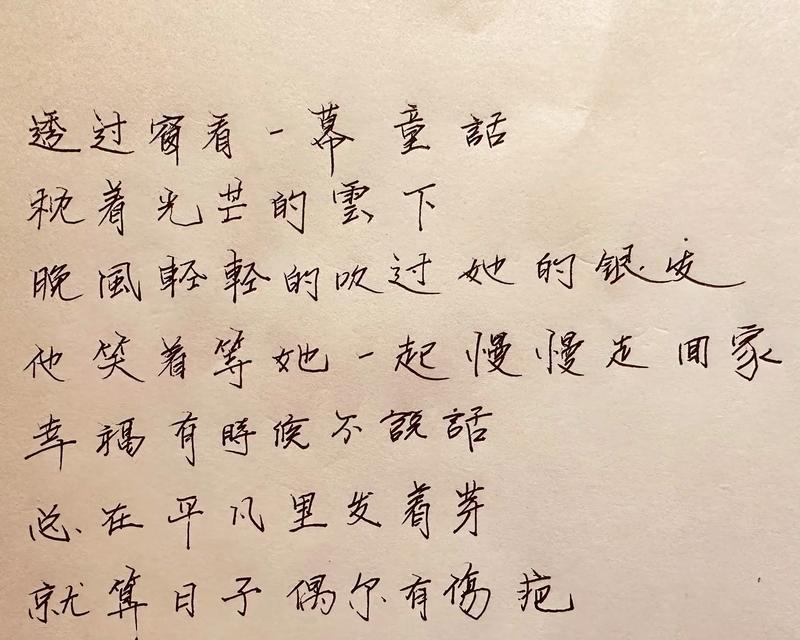 透过窗看一幕童話
枕着光芒的雲下
晚風輕輕的吹过她的银发
他笑着等她一起慢慢走回家
幸福有時候不説話
总在平凡里发着芽
就算日子偶尔有傷疤